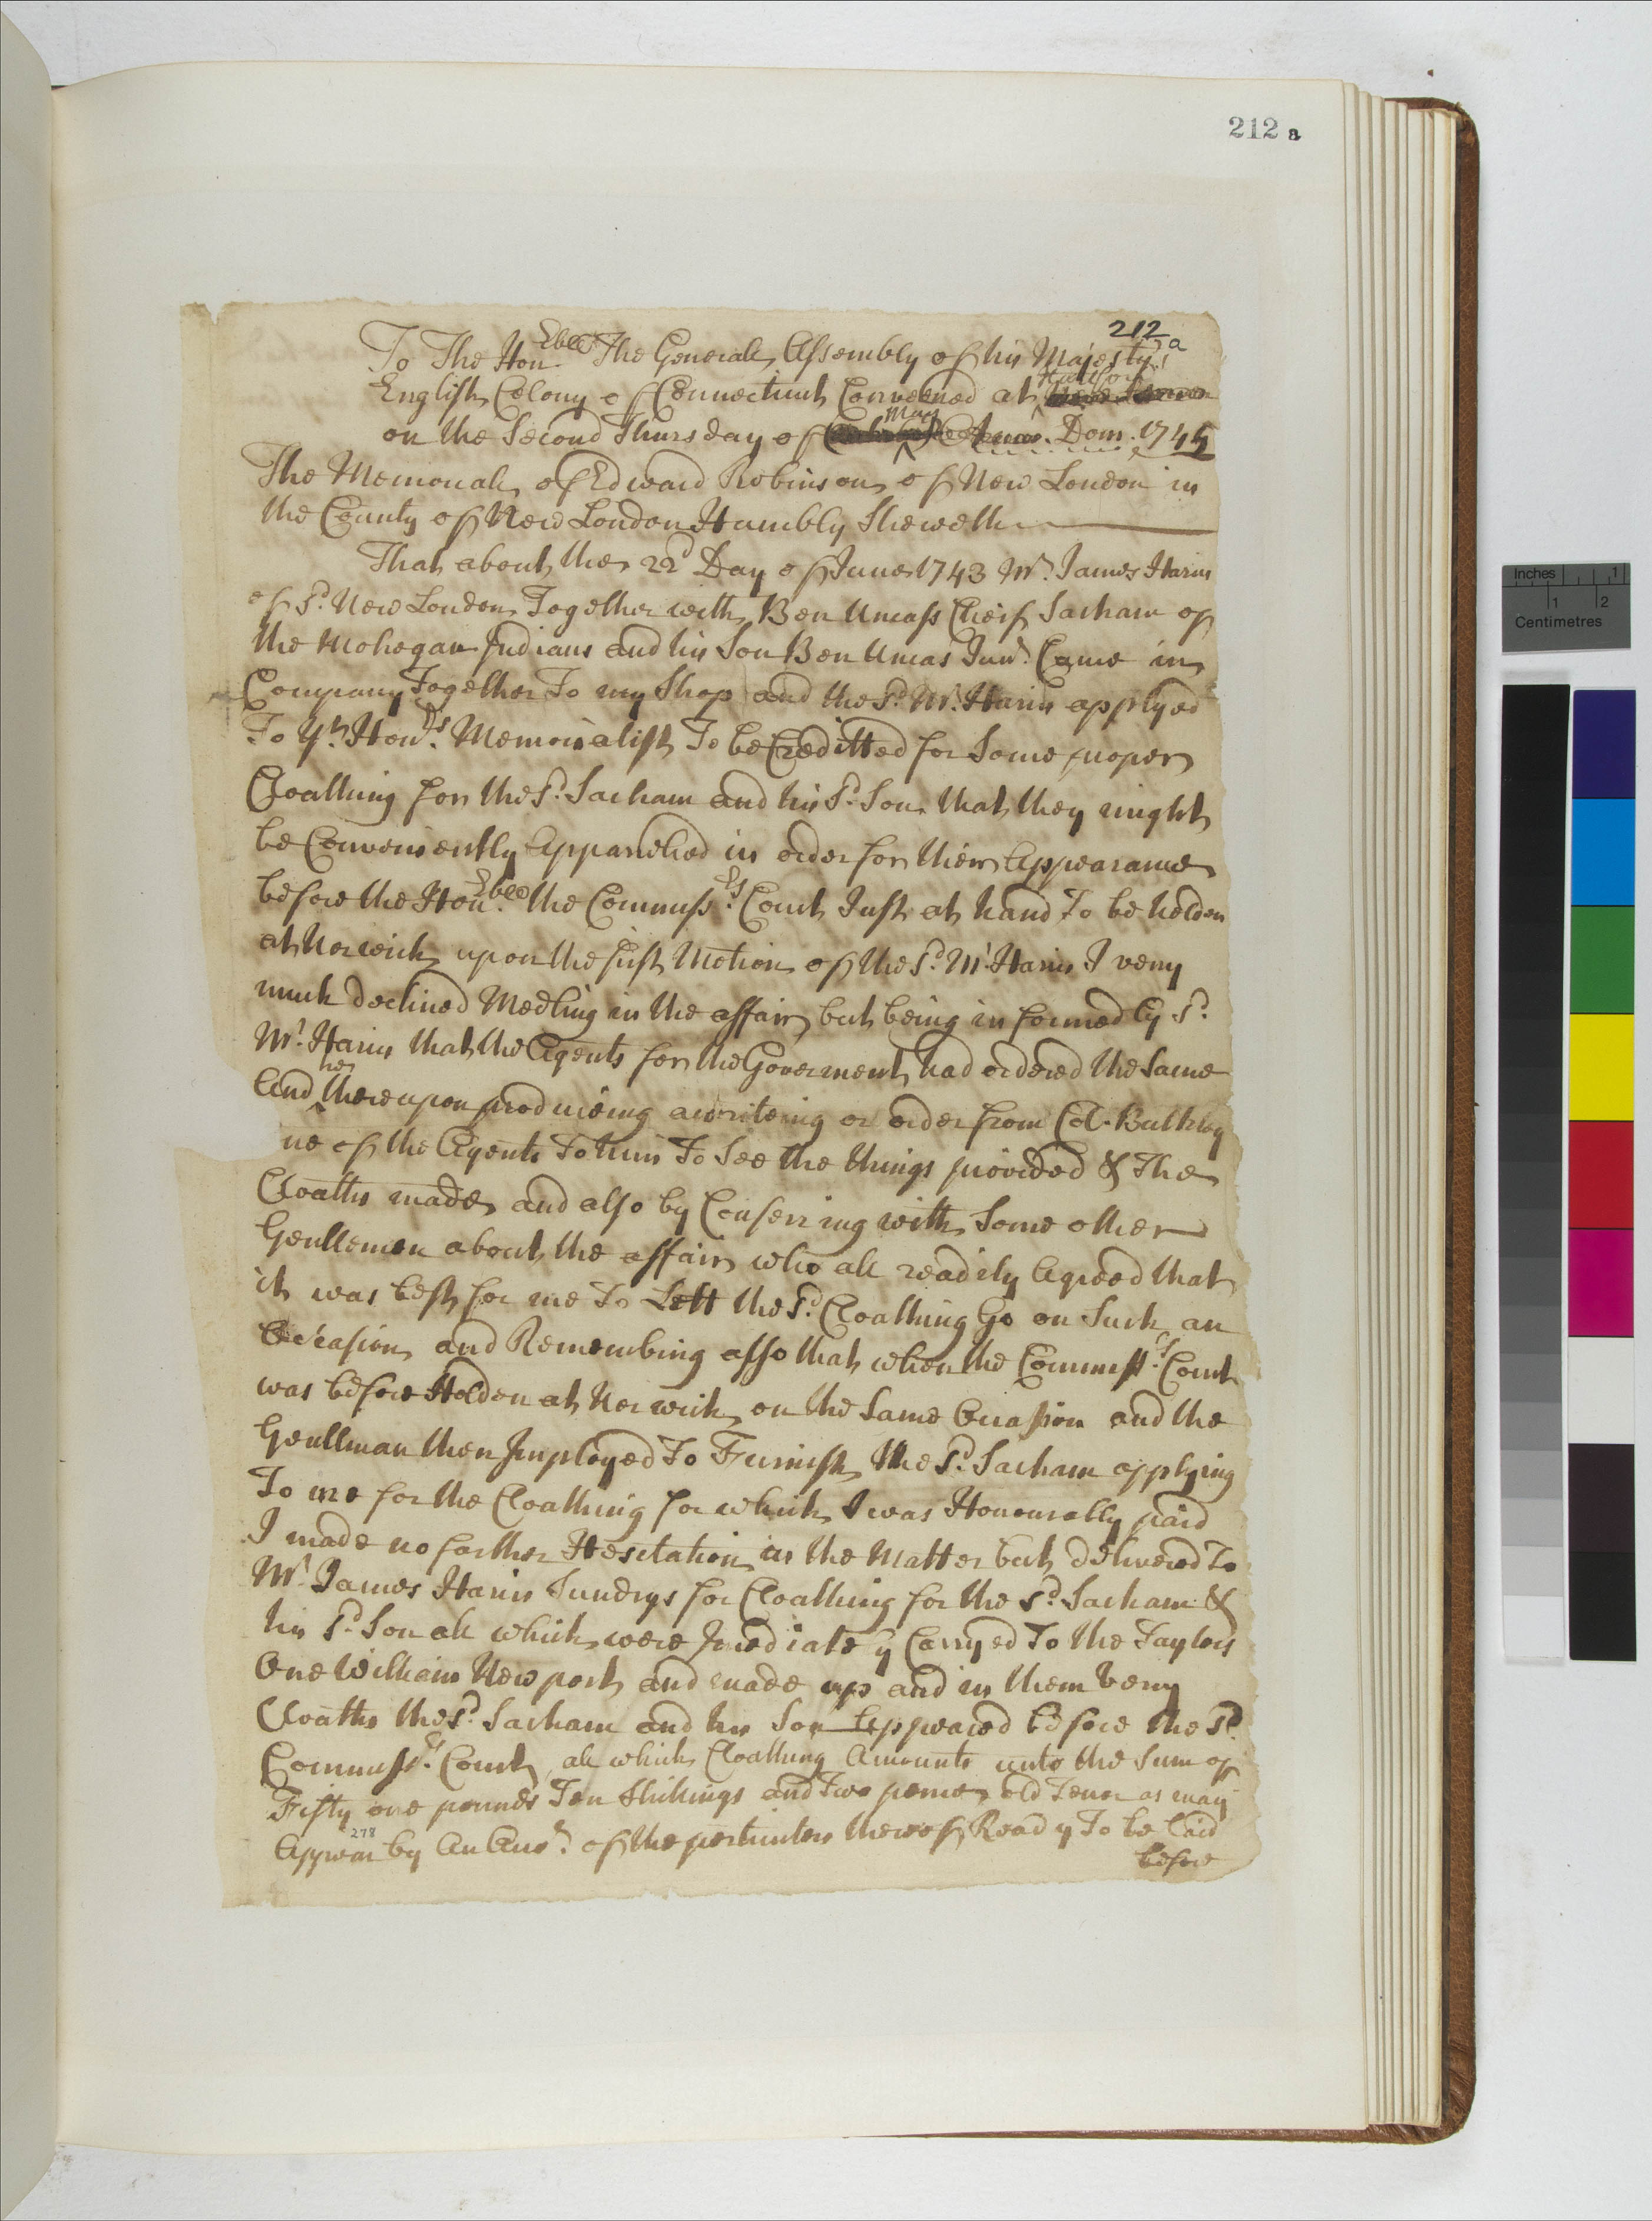 212 a
212 a
To The Hon.Eble The Generall Assembly of his Majesty's
English Colony of Connecticutt Conveened at Hartford
on the Second Thursday of May Dom. 1744
The Memoriall of Edward Robinson of New London in
the County of New London Humbly Sheweth
That about the 22d Day of June 1743 Mr. James Harris
of Sd. New London Together with Ben Uncass Cheif Sacham of
the Mohegan Indians and his Son Ben Uncas Junr. Came in
Company Together To my Shop and the Sd. Mr. Harris applyed
To Yr. Honrs. Memorialist To be Creditted for Some proper
Cloathing for the Sd. Sacham and his Sd. Son that they might
be Conveniently Apparelled in order for their Appearance
before the Hon.Eble the Commissrs. Court Just at hand To be holden
at Norwich upon the first Motion of the Sd. Mr. Harris I very
much declined Medling in the affair but being informed by Sd.
Mr. Harris that the Agents for the Goverment had ordered the Same
And he thereupon produceing a writeing or order from Col. Bulkley
ne of the Agents To him To See the things provided & The
Cloaths made and also by Conferring with Some other
Gentlemen about the affair who all readily Agreed that
it was best for me To Lett the Sd. Cloathing Go on Such an
Occasion and Remembring also that when the Commissrs. Court
was before Holden at Norwich on the Same Occasion and the
Gentlman then Imployed To Furnish the Sd. Sacham applying
To me for the Cloathing for which I was Honourably paid
I made no farther Hesitation in the Matter but delivered To
Mr. James Harris Sundrys for Cloathing for the Sd. Sacham &
his Sd. Son all which were Imediately Carryed To the Taylors
One William Newport and made up and in them very
Cloaths the Sd. Sacham and his Son Appeared before the Sd.
Commissrs. Court, all which Cloathing Amounts unto the Sum of
Fifty one pounds Ten Shillings and Two pence old Tenor as may
Appear by An of the perticulers thereof Ready To be laid
278
before
Inches 1
1 2
Centimetres